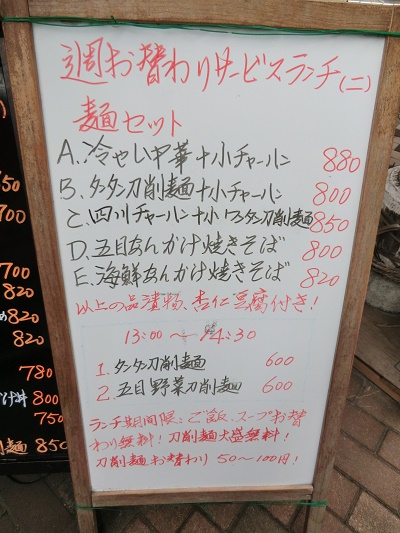 週お替わりサービスランチ(二)
麺セット
A.冷やし中華+小チャーハン 880
B.タンタン刀削麺+小チャーハン 800
C.四川チャーハン+小タンタン刀削麺 850
D.五目あんかけ焼きそば 800
E.海鮮あんかけ焼きそば 820
以上の品漬物、杏仁豆腐付き!
13:00〜14:30
1.タンタン刀削麺 600
2.五目野菜刀削麺 600
ランチ期間限、ご飯、スープお替
わり無料!刀削麺大盛無料!
刀削麺お替わり 50〜100円!
700
700
820
820
820
780
800
750
麺 850